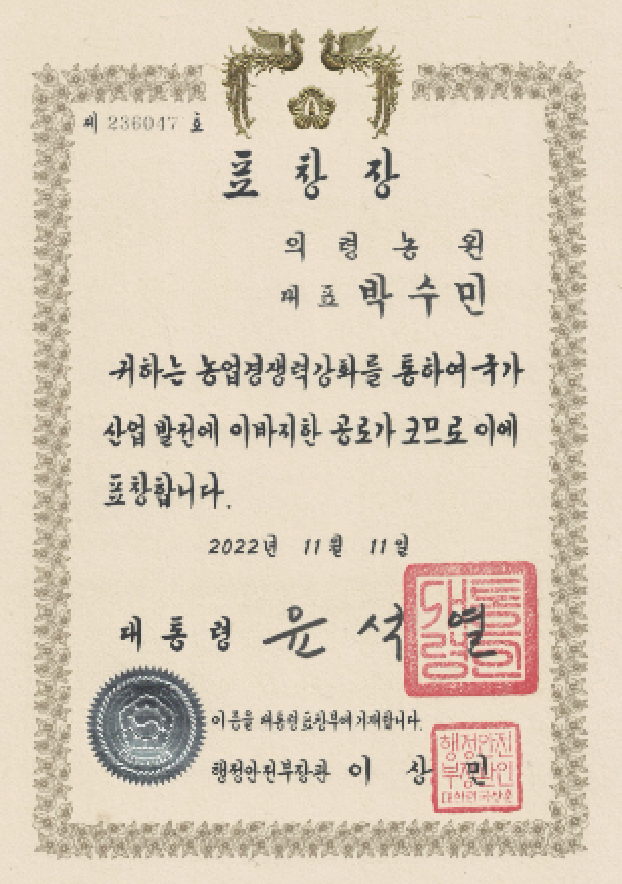 제 236047 호
표창장
의령농원
대표 박수민
귀하는 농업경쟁력강화를 통하여 국가
산업 발전에 이바지한 공로가 크므로 이에
표창합니다.
2022년 11월 11일
대통령 윤석열
대통령의인
이 증을 대통령표창부에 기재합니다.
행정안전부장관 이상민
행정안전
부장관인